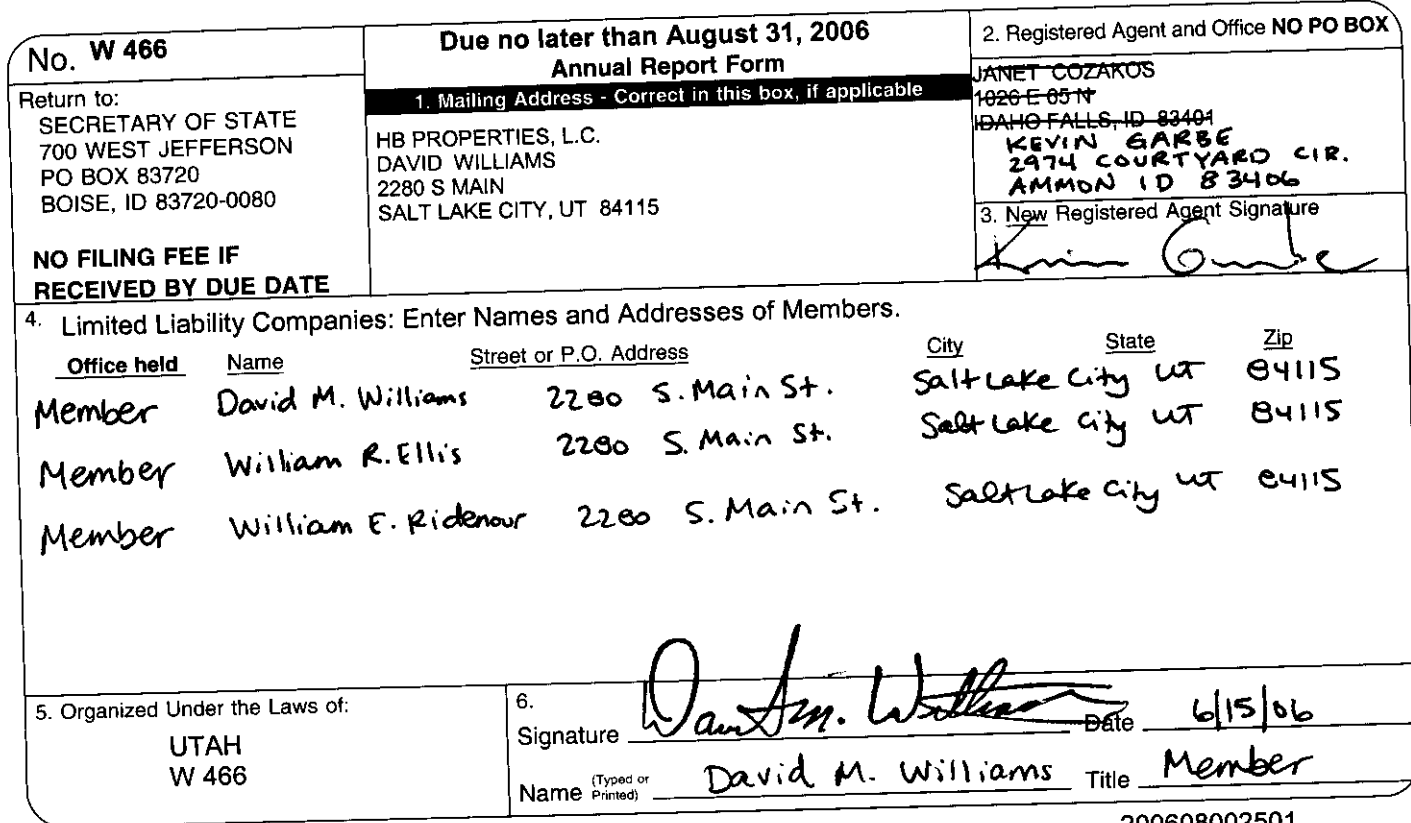 No. W 466
Return to:
SECRETARY OF STATE
700 WEST JEFFERSON
PO BOX 83720
BOISE, ID 83720-0080
NO FILING FEE IF
RECEIVED BY DUE DATE
Due no later than August 31, 2006
Annual Report Form
1. Mailing Address - Correct in this box, if applicable
HB PROPERTIES, L.C.
DAVID WILLIAMS
2280 S MAIN
SALT LAKE CITY, UT 84115
2. Registered Agent and Office NO PO BOX
JANET COZAKOS
1026 E 65 N
IDAHO FALLS, ID 83401
KEVIN GARBE
2974 COURTYARD CIR.
AMMON ID 83406
3. New Registered Agent Signature
4. Limited Liability Companies: Enter Names and Addresses of Members.
Office held Name Street or P.O. Address City State Zip
Member David M. Williams 2280 S. Main St. Salt Lake City UT 84115
Member William R. Ellis 2280 S. Main St. Salt Lake City UT 84115
Member William E. Ridenour 2280 S. Main St. Salt Lake City UT 84115
5. Organized Under the Laws of:
UTAH
W 466
6.
Signature David M. Williams Date 6/15/06
Name (Typed or Printed) David M. Williams Title Member
200608002501